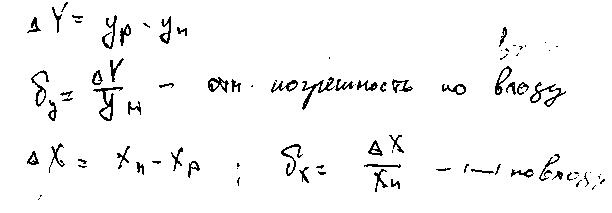 ΔY = yр - yн
δy = ΔY/yн – отн. погрешность по входу
ΔX = xн - xр ; δx = ΔX/xн – |—| по входу